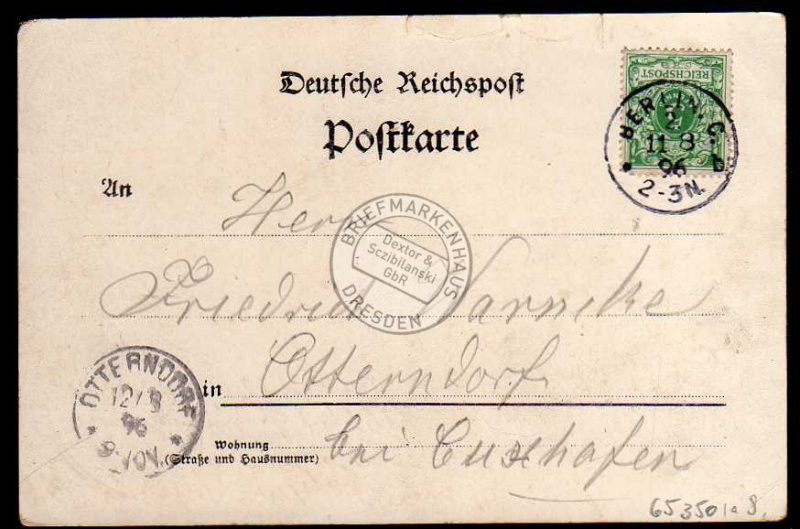 Deutsche Reichspost
Postkarte
REICHSPOST
BERLIN. C
2
11 8
96
2-3N.
An
Herrn
BRIEFMARKENHAUS
Dextor &
Sczibilanski
GbR
DRESDEN
Friedrich Warncke
in Otterndorf
bei Cuxhafen
OTTERNDORF
12/8
96
Wohnung
(Straße und Hausnummer)
65350 a 8,